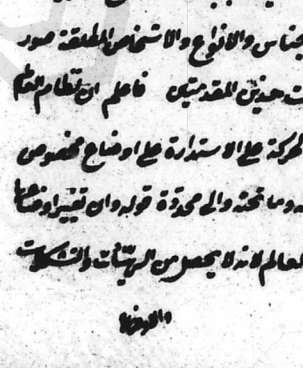 جناس والانواع والاشخاص المطلقة صور
ت هذين المقدمتين فاعلم ان نظام العالم
لحركة على الاستدارة على اوضاع مخصوص
وما تحته والى محدوة قوله وان تغيير اوضاعها
لعالم لانه لا يحصل من الهيئات والتشكلات
والاوضاع